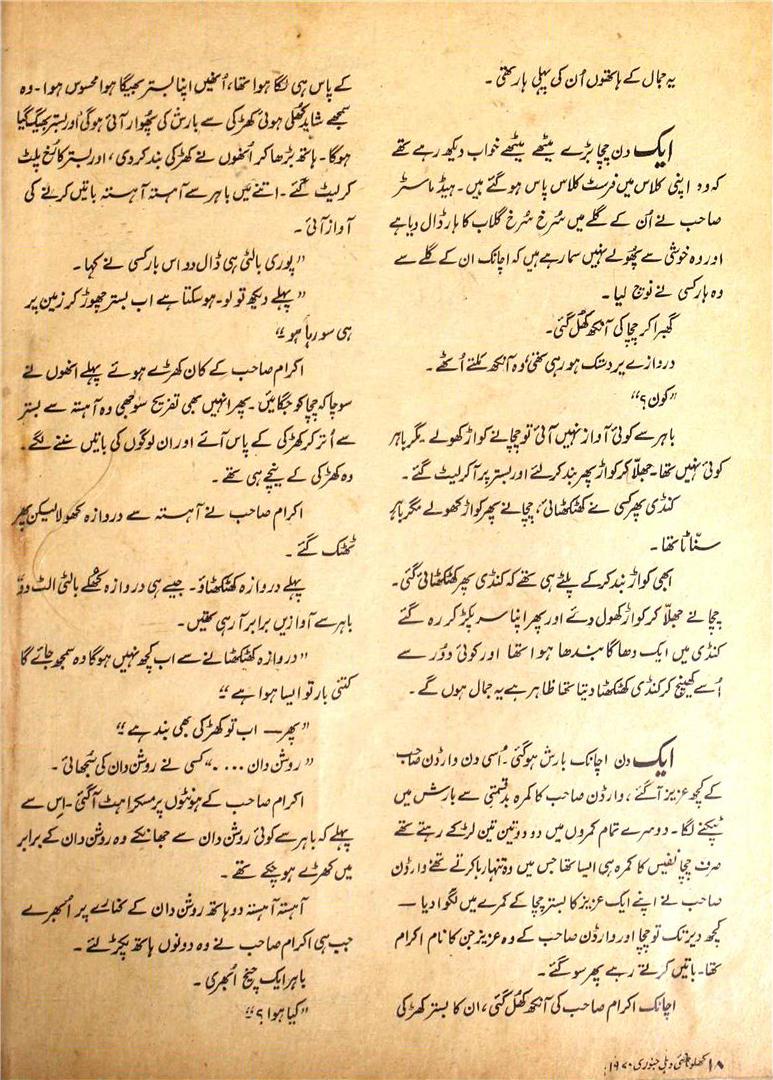 یہ جمال کے ہاتھوں اُن کی پہلی ہار تھی۔
ایک دن چچا بڑے میٹھے میٹھے خواب دیکھ رہے تھے
کہ وہ اپنی کلاس میں فرسٹ کلاس پاس ہوگئے ہیں۔ ہیڈ ماسٹر
صاحب نے اُن کے گلے میں سُرخ سُرخ گلاب کا ہار ڈال دیا ہے
اور وہ خوشی سے پھُولے نہیں سما رہے ہیں کہ اچانک ان کے گلے سے
وہ ہار کسی نے نوچ لیا۔
گھبرا کر چچا کی آنکھ کھُل گئی۔
دروازے پر دستک ہو رہی تھی، وہ آنکھ مَلتے اُٹھے۔
”کون؟“
باہر سے کوئی آواز نہیں آئی تو چچا نے کواڑ کھولے۔ مگر باہر
کوئی نہیں تھا۔ جھلّا کر کواڑ پھر بند کرلئے اور بستر پر آکر لیٹ گئے۔
کنڈی پھر کسی نے کھٹکھٹائی، چچا نے پھر کواڑ کھولے مگر باہر
سنّاٹا تھا۔
ابھی کواڑ بند کرکے پلٹے ہی تھے کہ کنڈی پھر کھٹکھٹائی گئی۔
چچا نے جھلّا کر کواڑ کھول دئے اور پھر اپنا سر پکڑ کر رہ گئے
کنڈی میں ایک دھاگا بندھا ہوا تھا اور کوئی دُور سے
اُسے کھینچ کر کنڈی کھٹکھٹا دیتا تھا ظاہر ہے یہ جمال ہوں گے۔
ایک دن اچانک بارش ہوگئی۔ اُسی دن وارڈن صاحب
کے کچھ عزیز آگئے، وارڈن صاحب کا کمرہ بدقسمتی سے بارش میں
ٹپکنے لگا۔ دوسرے تمام کمروں میں دو دو تین تین لڑکے رہتے تھے
صرف چچا نفیس کا کمرہ ہی ایسا تھا جس میں وہ تنہا رہا کرتے تھے وارڈن
صاحب نے اپنے ایک عزیز کا بستر چچا کے کمرے میں لگوا دیا —
کچھ دیر تک تو چچا اور وارڈن صاحب کے وہ عزیز جن کا نام اکرام
تھا۔ باتیں کرتے رہے پھر سو گئے۔
اچانک اکرام صاحب کی آنکھ کھُل گئی، ان کا بستر کھڑکی
کے پاس ہی لگا ہوا تھا، اُنھیں اپنا بستر بھیگا ہوا محسوس ہوا۔ وہ
سمجھے شاید کھُلی ہوئی کھڑکی سے بارش کی پھُوار آئی ہوگی اور بستر بھیگ گیا
ہوگا۔ ہاتھ بڑھا کر اُنھوں نے کھڑکی بند کردی، اور بستر کا رُخ پلٹ
کر لیٹ گئے۔ اتنے میں باہر سے آہستہ آہستہ باتیں کرنے کی
آواز آئی۔
”پوری بالٹی ہی ڈال دو اس بار کسی نے کہا۔
”پہلے دیکھ تو لو۔ ہوسکتا ہے اب بستر چھوڑ کر زمین پر
ہی سو رہا ہو“
اکرام صاحب کے کان کھڑے ہوئے پہلے انھوں نے
سوچا کہ چچا کو جگائیں۔ پھر انہیں بھی تفریح سوجھی وہ آہستہ سے بستر
سے اُتر کر کھڑکی کے پاس آئے اور ان لوگوں کی باتیں سننے لگے۔
وہ کھڑکی کے نیچے ہی تھے۔
اکرام صاحب نے آہستہ سے دروازہ کھولا لیکن پھر
ٹھٹک گئے۔
پہلے دروازہ کھٹکھٹاؤ۔ جیسے ہی دروازہ کھُلے بالٹی الٹ دو“
باہر سے آوازیں برابر آ رہی تھیں۔
”دروازہ کھٹکھٹانے سے اب کچھ نہیں ہوگا وہ سمجھ جائے گا
کتنی بار تو ایسا ہوا ہے“
”پھر — اب تو کھڑکی بھی بند ہے“
”روشن دان ....“ کسی نے روشن دان کی سُجھائی۔
اکرام صاحب کے ہونٹوں پر مسکراہٹ آگئی۔ اس سے
پہلے کہ باہر سے کوئی روشن دان سے جھانکے وہ روشن دان کے برابر
میں کھڑے ہوچکے تھے۔
آہستہ آہستہ دو ہاتھ روشن دان کے کنارے پر اُبھرے
جب ہی اکرام صاحب نے وہ دونوں ہاتھ پکڑ لئے۔
باہر ایک چیخ اُبھری۔
”کیا ہوا؟“
۱۸ کھلونا نئی دہلی جنوری ۱۹۷۰